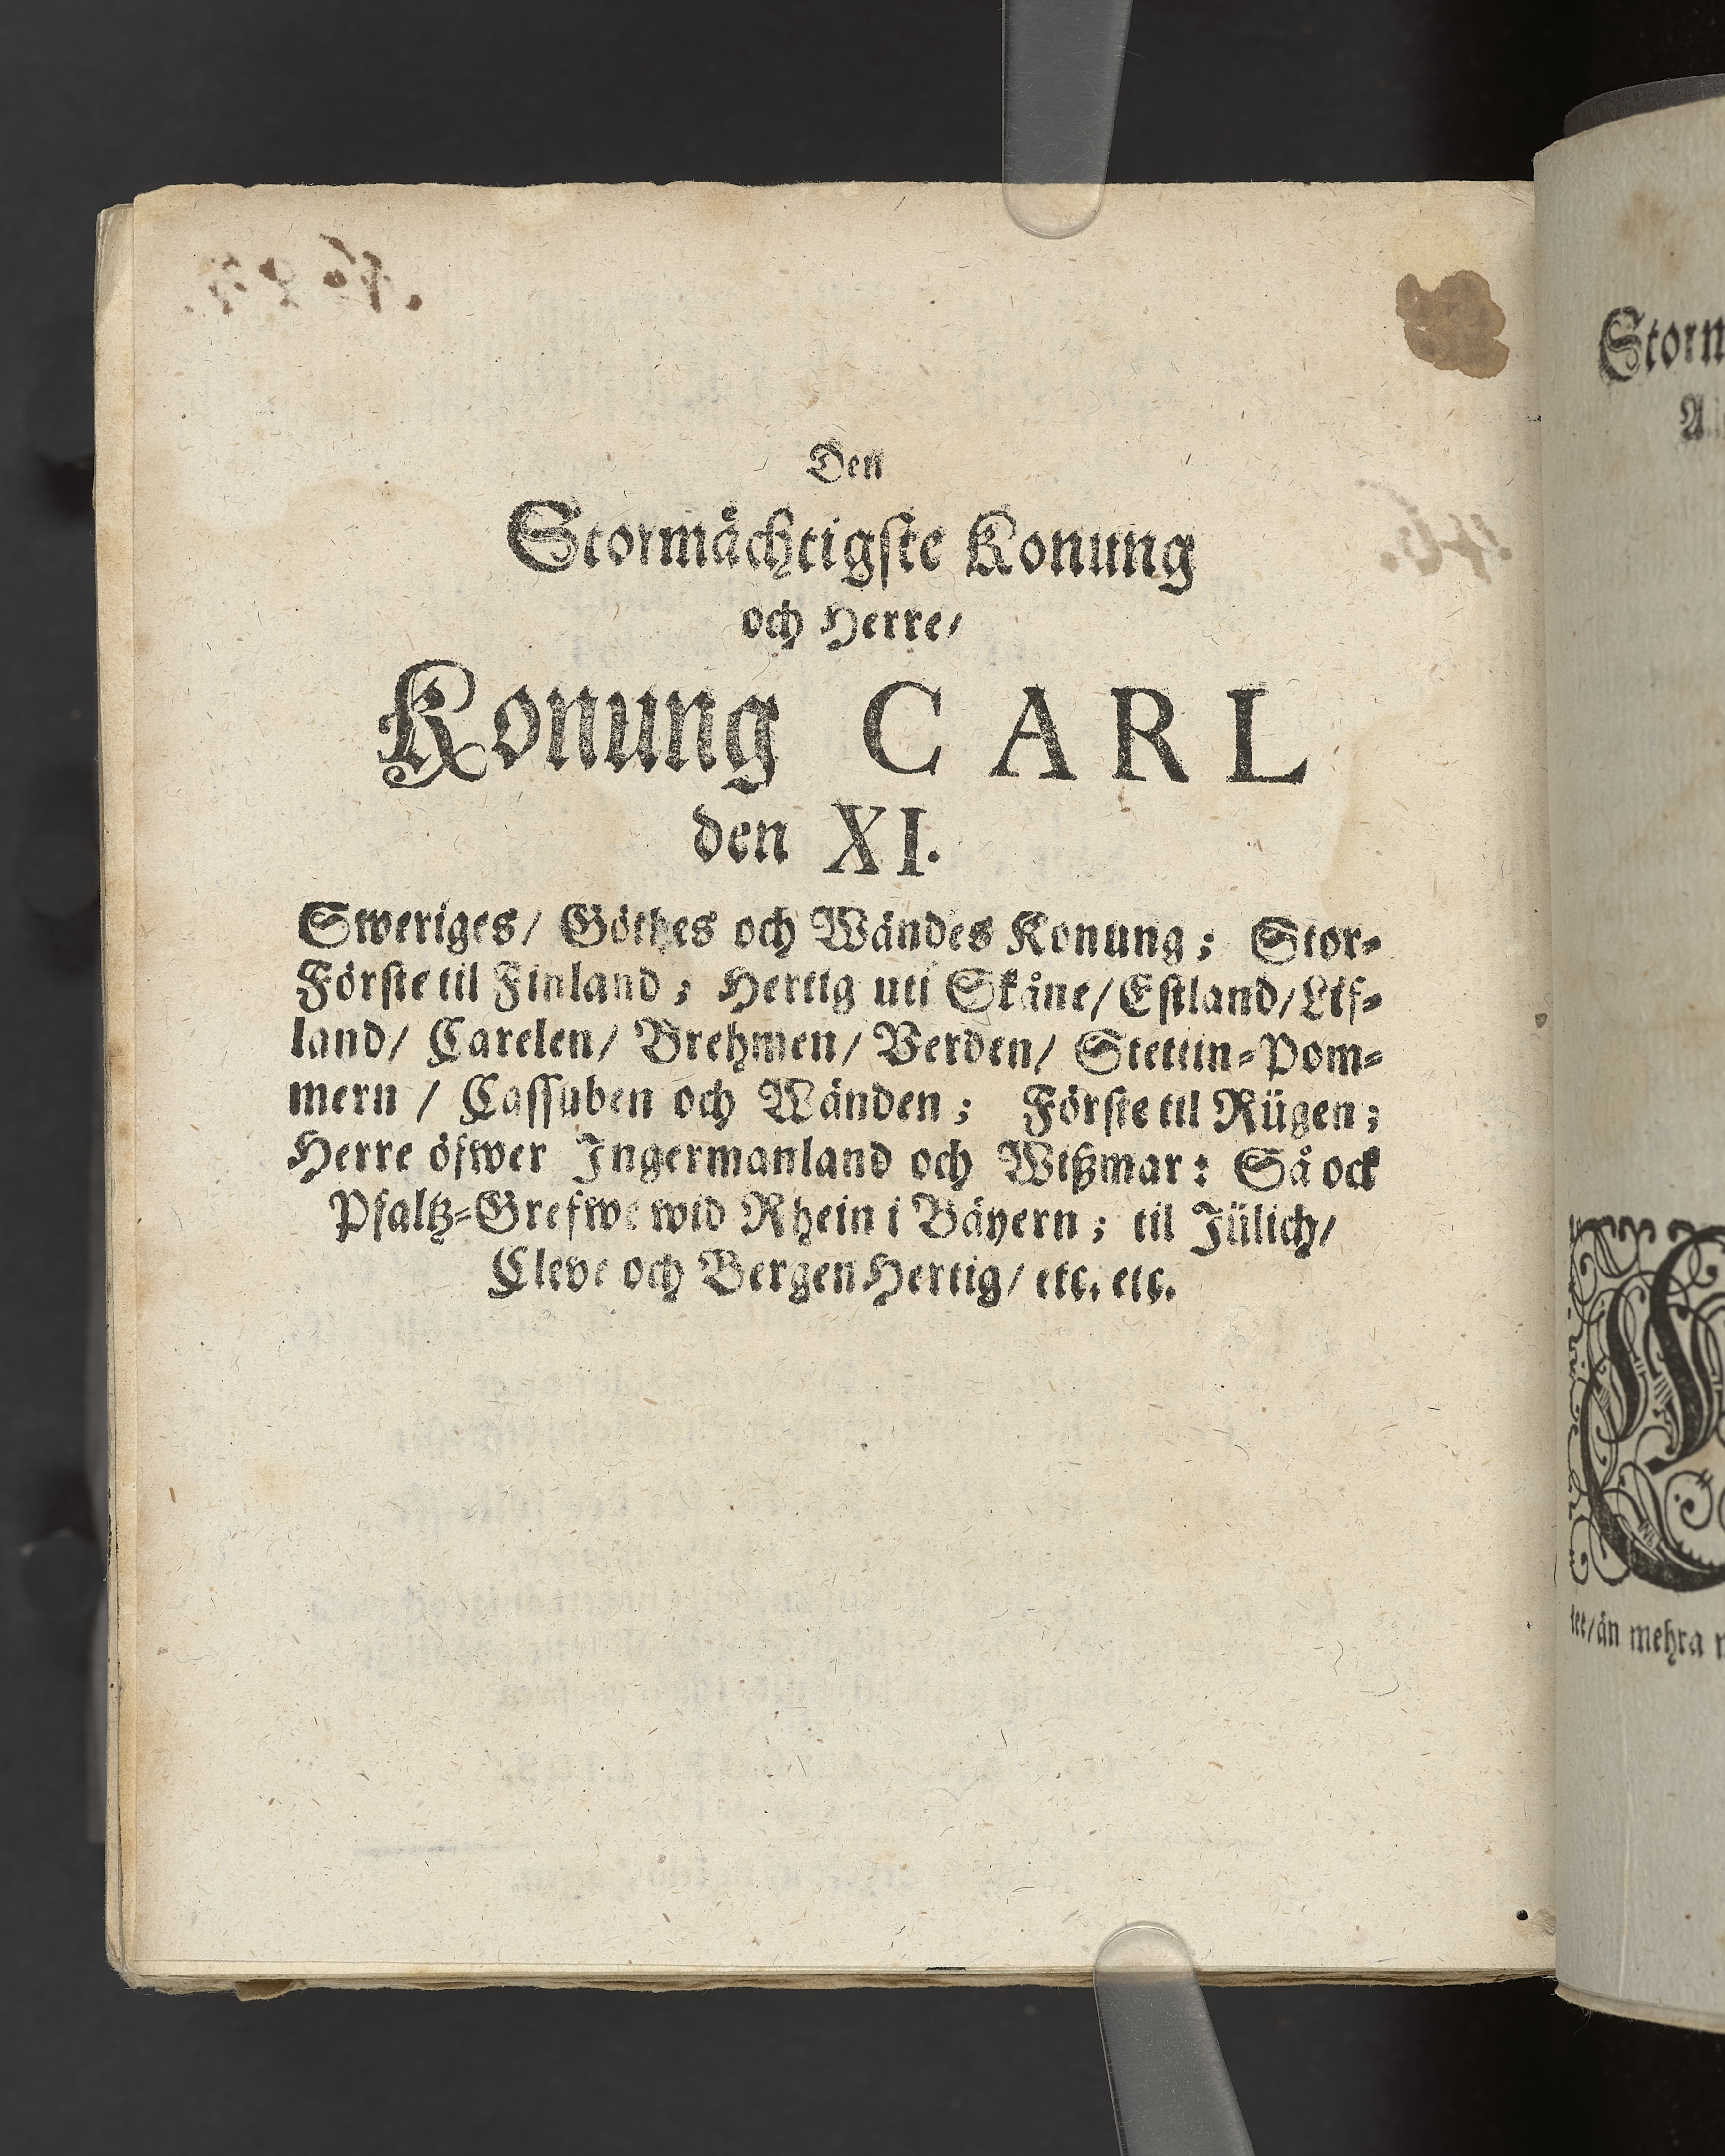 Den
Stormächtigste Konung
och Herre/
Konung CARL
den XI.
Sweriges/ Göthes och Wändes Konung; Stor-
Förste til Finland; Hertig uti Skåne/ Estland/ Lif-
land/ Carelen/ Brehmen/ Verden/ Stettin-Pom-
mern / Cassuben och Wänden; Förste til Rügen;
Herre öfwer Ingermanland och Wißmar: Så ock
Pfaltz-Grefwe wid Rhein i Bäyern; til Jülich/
Cleve och Bergen Hertig/ etc. etc.
Storm
tet/ än mehra